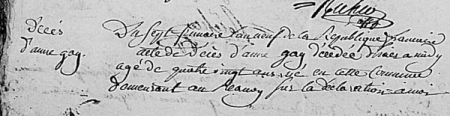 Décès
d'anne gay
Du sept frimaire l'an neuf de la République française
acte de Décès d'anne gay décédée hier a midy
agé de quatre vingt ans né en cette Commune
demeurant au sur la déclaration a moi